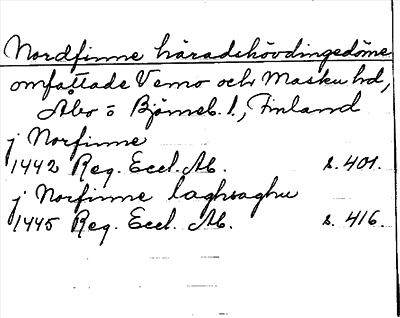 Nordfinne häradshövdingedöme
omfattade Vemo och Masku hd,
Åbo o Björneb. l., Finland
j Norfinne
1442 Reg. Eccl. Ab. s. 401.
j Norfinne laghsaghu
1445 Reg. Eccl. Ab. s. 416.